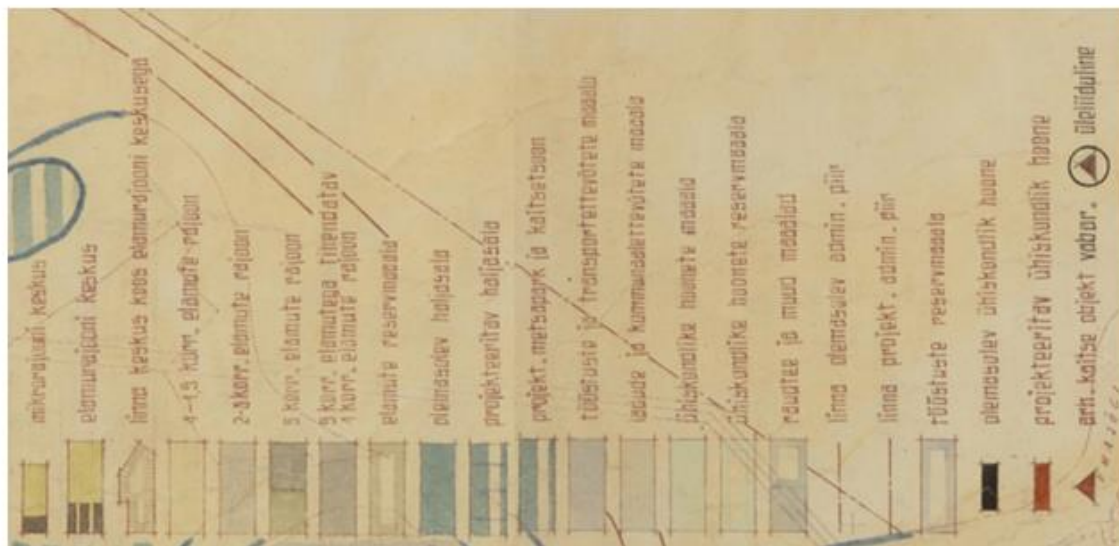 mikrorajooni keskus
elamurajooni keskus
linna keskus koos elamurajooni keskusega
1–1,5 korr. elamute rajoon
korr. elamute rajoon
5 korr. elamute rajoon
korr. elamutega tihendatav
korr. elamute rajoon
elamute reservmaaala
olemasolev haljasala
projekteeritav haljasala
projekt. metsapark ja kaitsetsoon
tööstuste ja transportettevõtete maaala
ladude ja kommunaalettevõtete maaala
ühiskondlike hoonete maaala
ühiskondlike hoonete reservmaaala
raudtee ja muud maaalad
linna olemasolev admin. piir
linna projekt. admin. piir
tööstuste reservmaaala
olemasolev ühiskondlik hoone
projekteeritav ühiskondlik hoone
arh. kaitse objekt vabar. üleliiduline